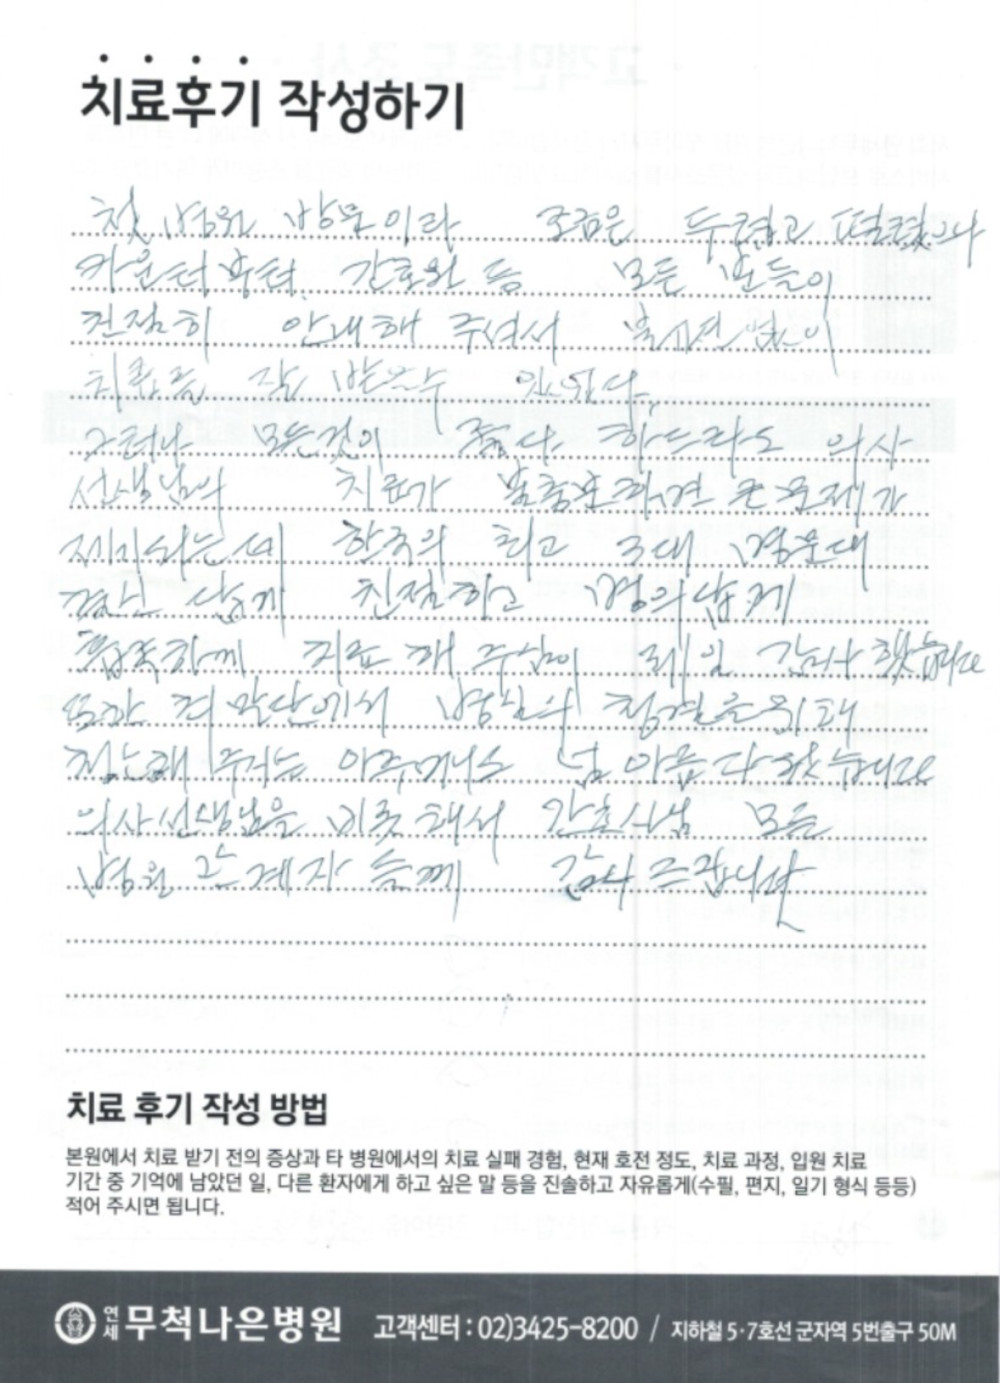 치료후기 작성하기
첫 병원 방문이라 조금은 두렵고 떨렸으나
카운터부터 간호원 등 모든 분들이
친절히 안내해 주셔서 불편 없이
치료를 잘 받을수 있었다.
그러나 모든것이 좋다 하드라도 의사
선생님의 치료가 불충분하면 큰 문제가
제기되는데 한국의 최고 3대 명문대
출신 답게 친절하고 명의답게
흡족하게 치료 해 주심이 제일 감사했습니다
또한 저 말단에서 병실의 청결을 위해
청소해 주시는 아주머니도 넘 아름다웠습니다
의사선생님을 비롯해서 간호사님 모든
병원 관계자 분께 감사드립니다
치료 후기 작성 방법
본원에서 치료 받기 전의 증상과 타 병원에서의 치료 실패 경험, 현재 호전 정도, 치료 과정, 입원 치료
기간 중 기억에 남았던 일, 다른 환자에게 하고 싶은 말 등을 진솔하고 자유롭게(수필, 편지, 일기 형식 등등)
적어 주시면 됩니다.
연세 무척나은병원 고객센터 : 02)3425-8200 / 지하철 5·7호선 군자역 5번출구 50M